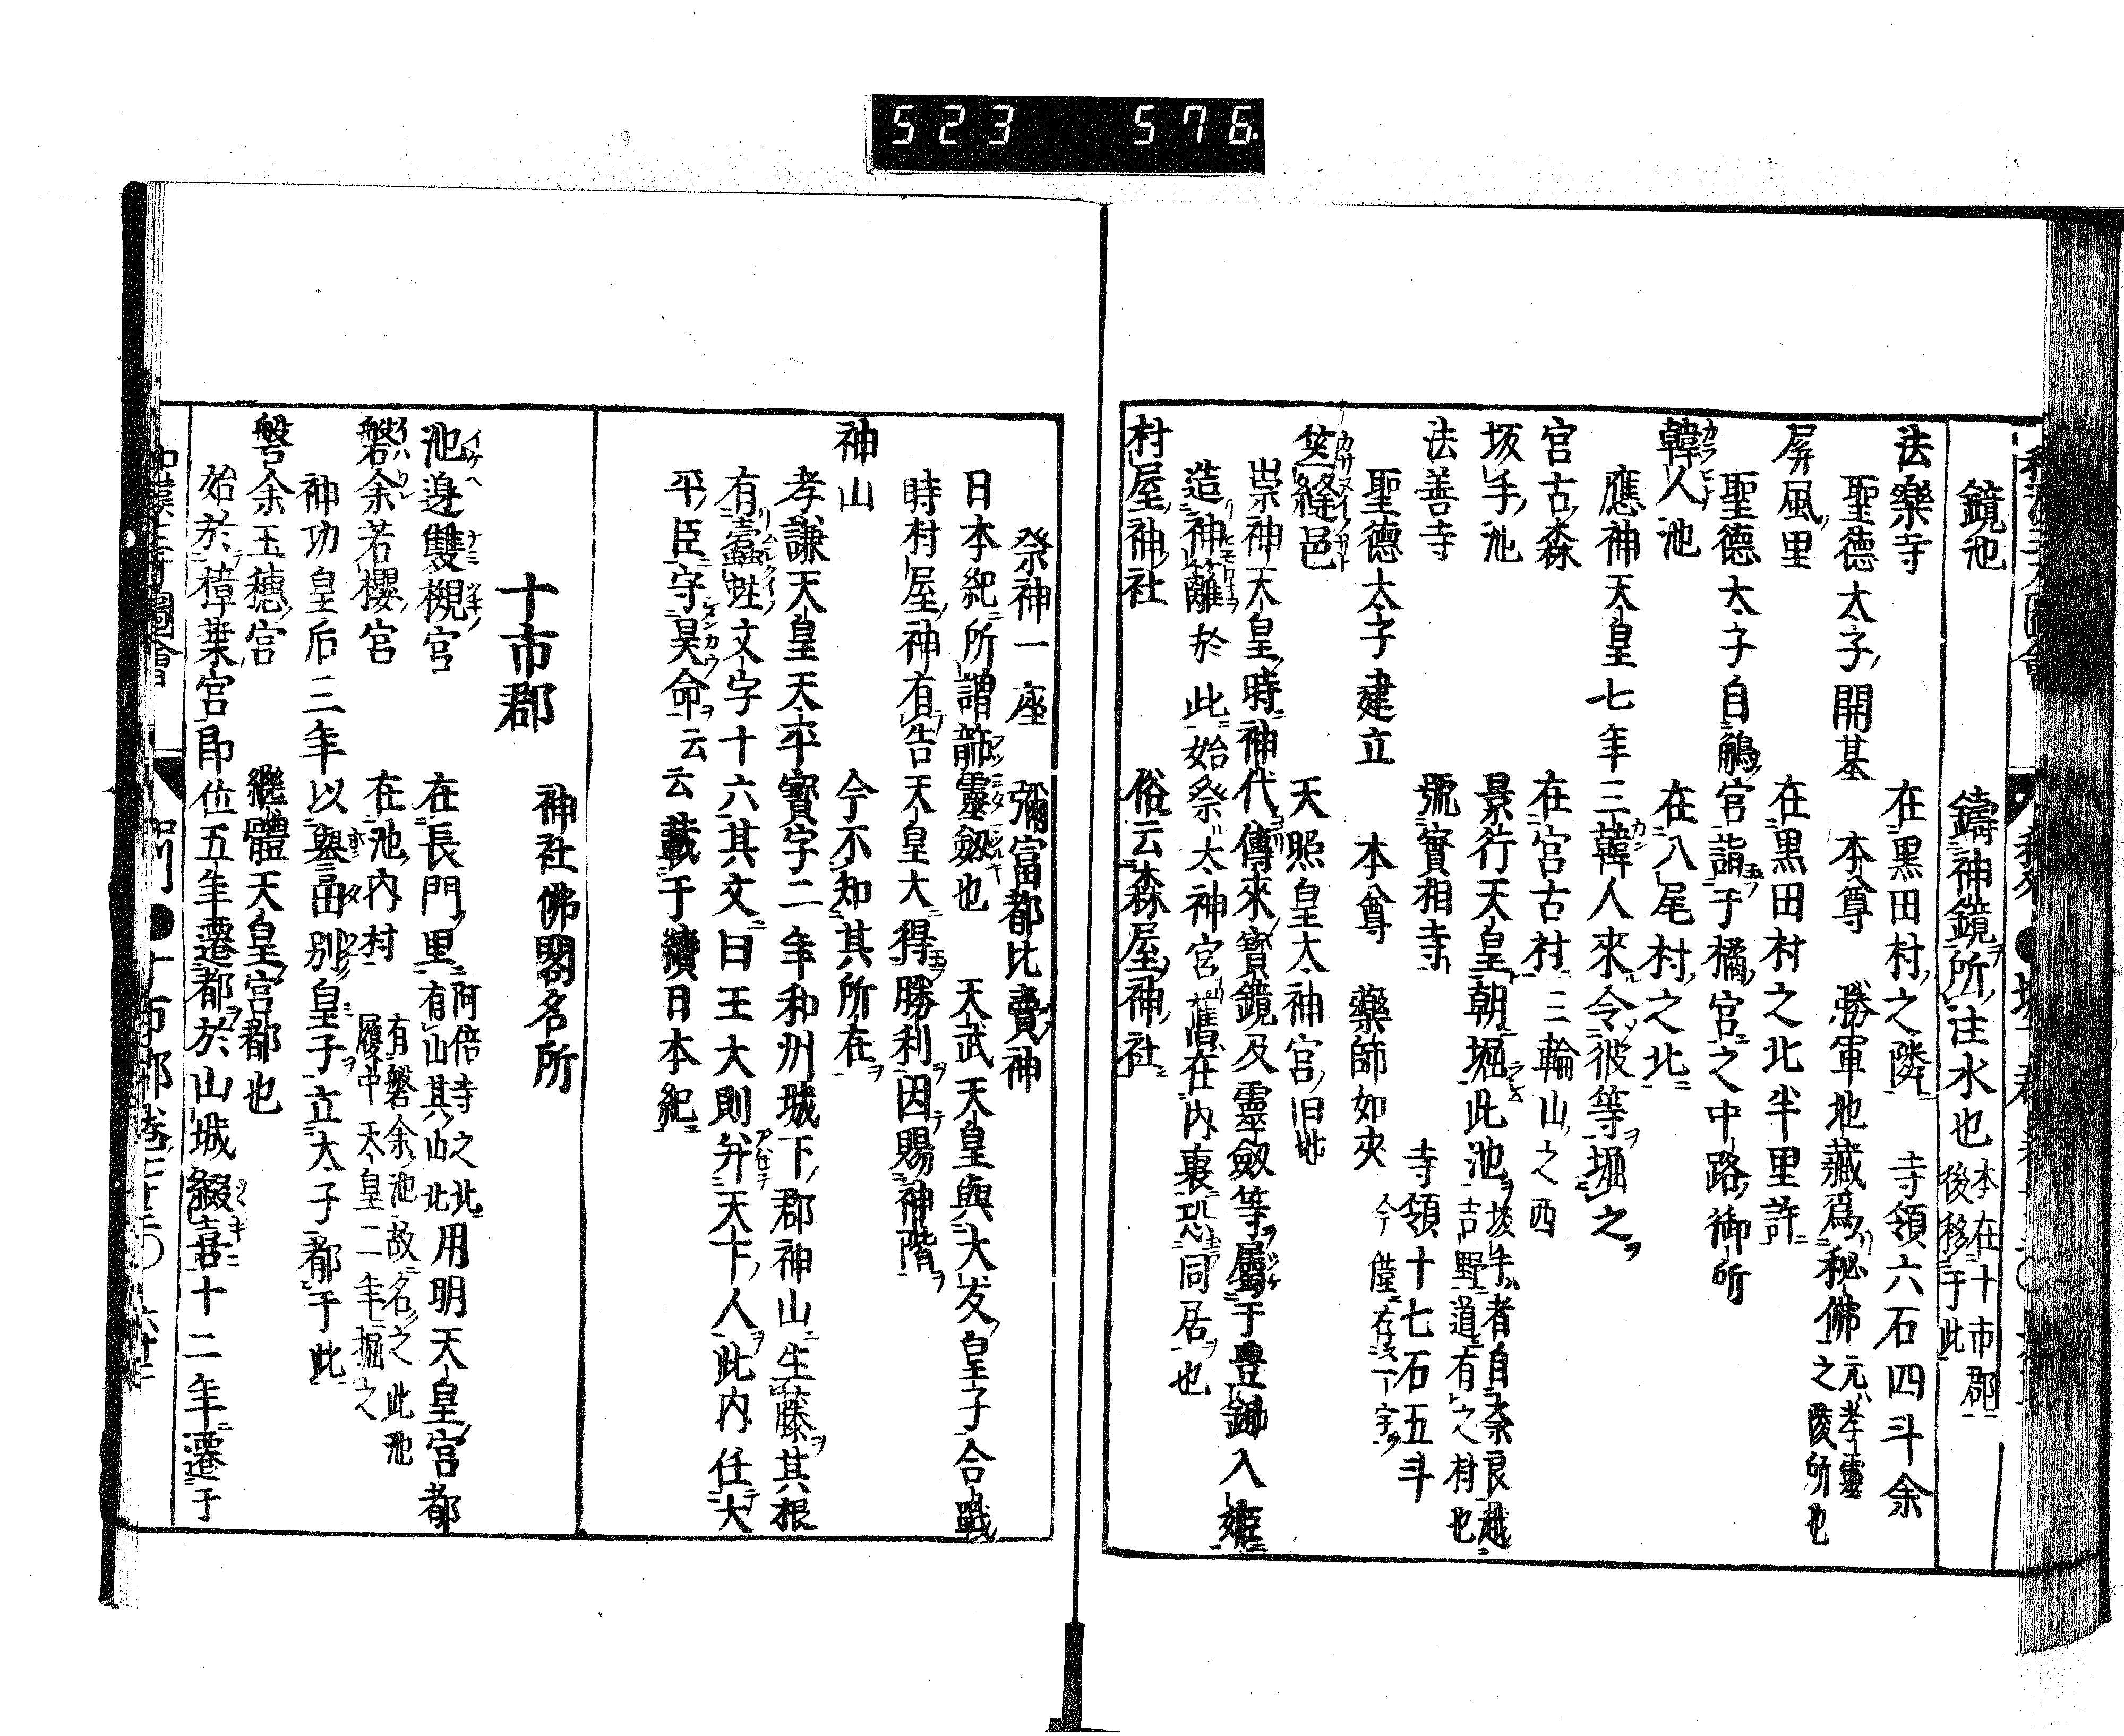 523 576
鏡池 鑄神鏡所注水也 本在十市郡
後移于此
法樂寺 在黒田村之隣 寺領六石四斗余
聖德太子開基 本尊 勝軍地藏爲秘佛 元孝靈
之陵所也
屏風里 在黒田村之北半里許
聖德太子自鵤宮詣于橘宮之中路御所
韓人池 在八尾村之北
應神天皇七年三韓人來令彼等堀之
宮古森 在宮古村三輪山之西
坂手池 景行天皇朝堀此池 坂手者自奈良越
吉野道有之村也
法善寺 號實相寺 寺領十七石五斗
聖德太子建立 本尊 藥師如來 今僅存一宇
笠縫邑 天照皇太神宮旧地
崇神天皇時神代傳來寶鏡及靈劔等屬于豊鋤入姫
造神籬於此始祭太神宮 舊在内裏恐同居也
村屋神社 俗云森屋神社
祭神一座 彌富都比賣神
日本紀所謂韴靈劔也 天武天皇與大友皇子合戰
時村屋神有告天皇大得勝利因賜神階
神山 今不知其所在
孝謙天皇天平寳字二年和州城下郡神山生藤其根
有蠧蛀文字十六其文曰王大則并天下人此内任大
平臣守昊命云云載于續日本紀
十市郡 神社佛閣名所
池邊雙槻宮 在長門里 阿倍寺之北
有山其山北 用明天皇宮都
磐余若櫻宮 在池内村 有磐余池故名之此池
履中天皇二年掘之
神功皇后三年以譽田別皇子立太子都于此
磐余玉穗宮 繼體天皇宮都也
始於樟葉宮即位五年遷都於山城綴喜十二年遷于
十市郡